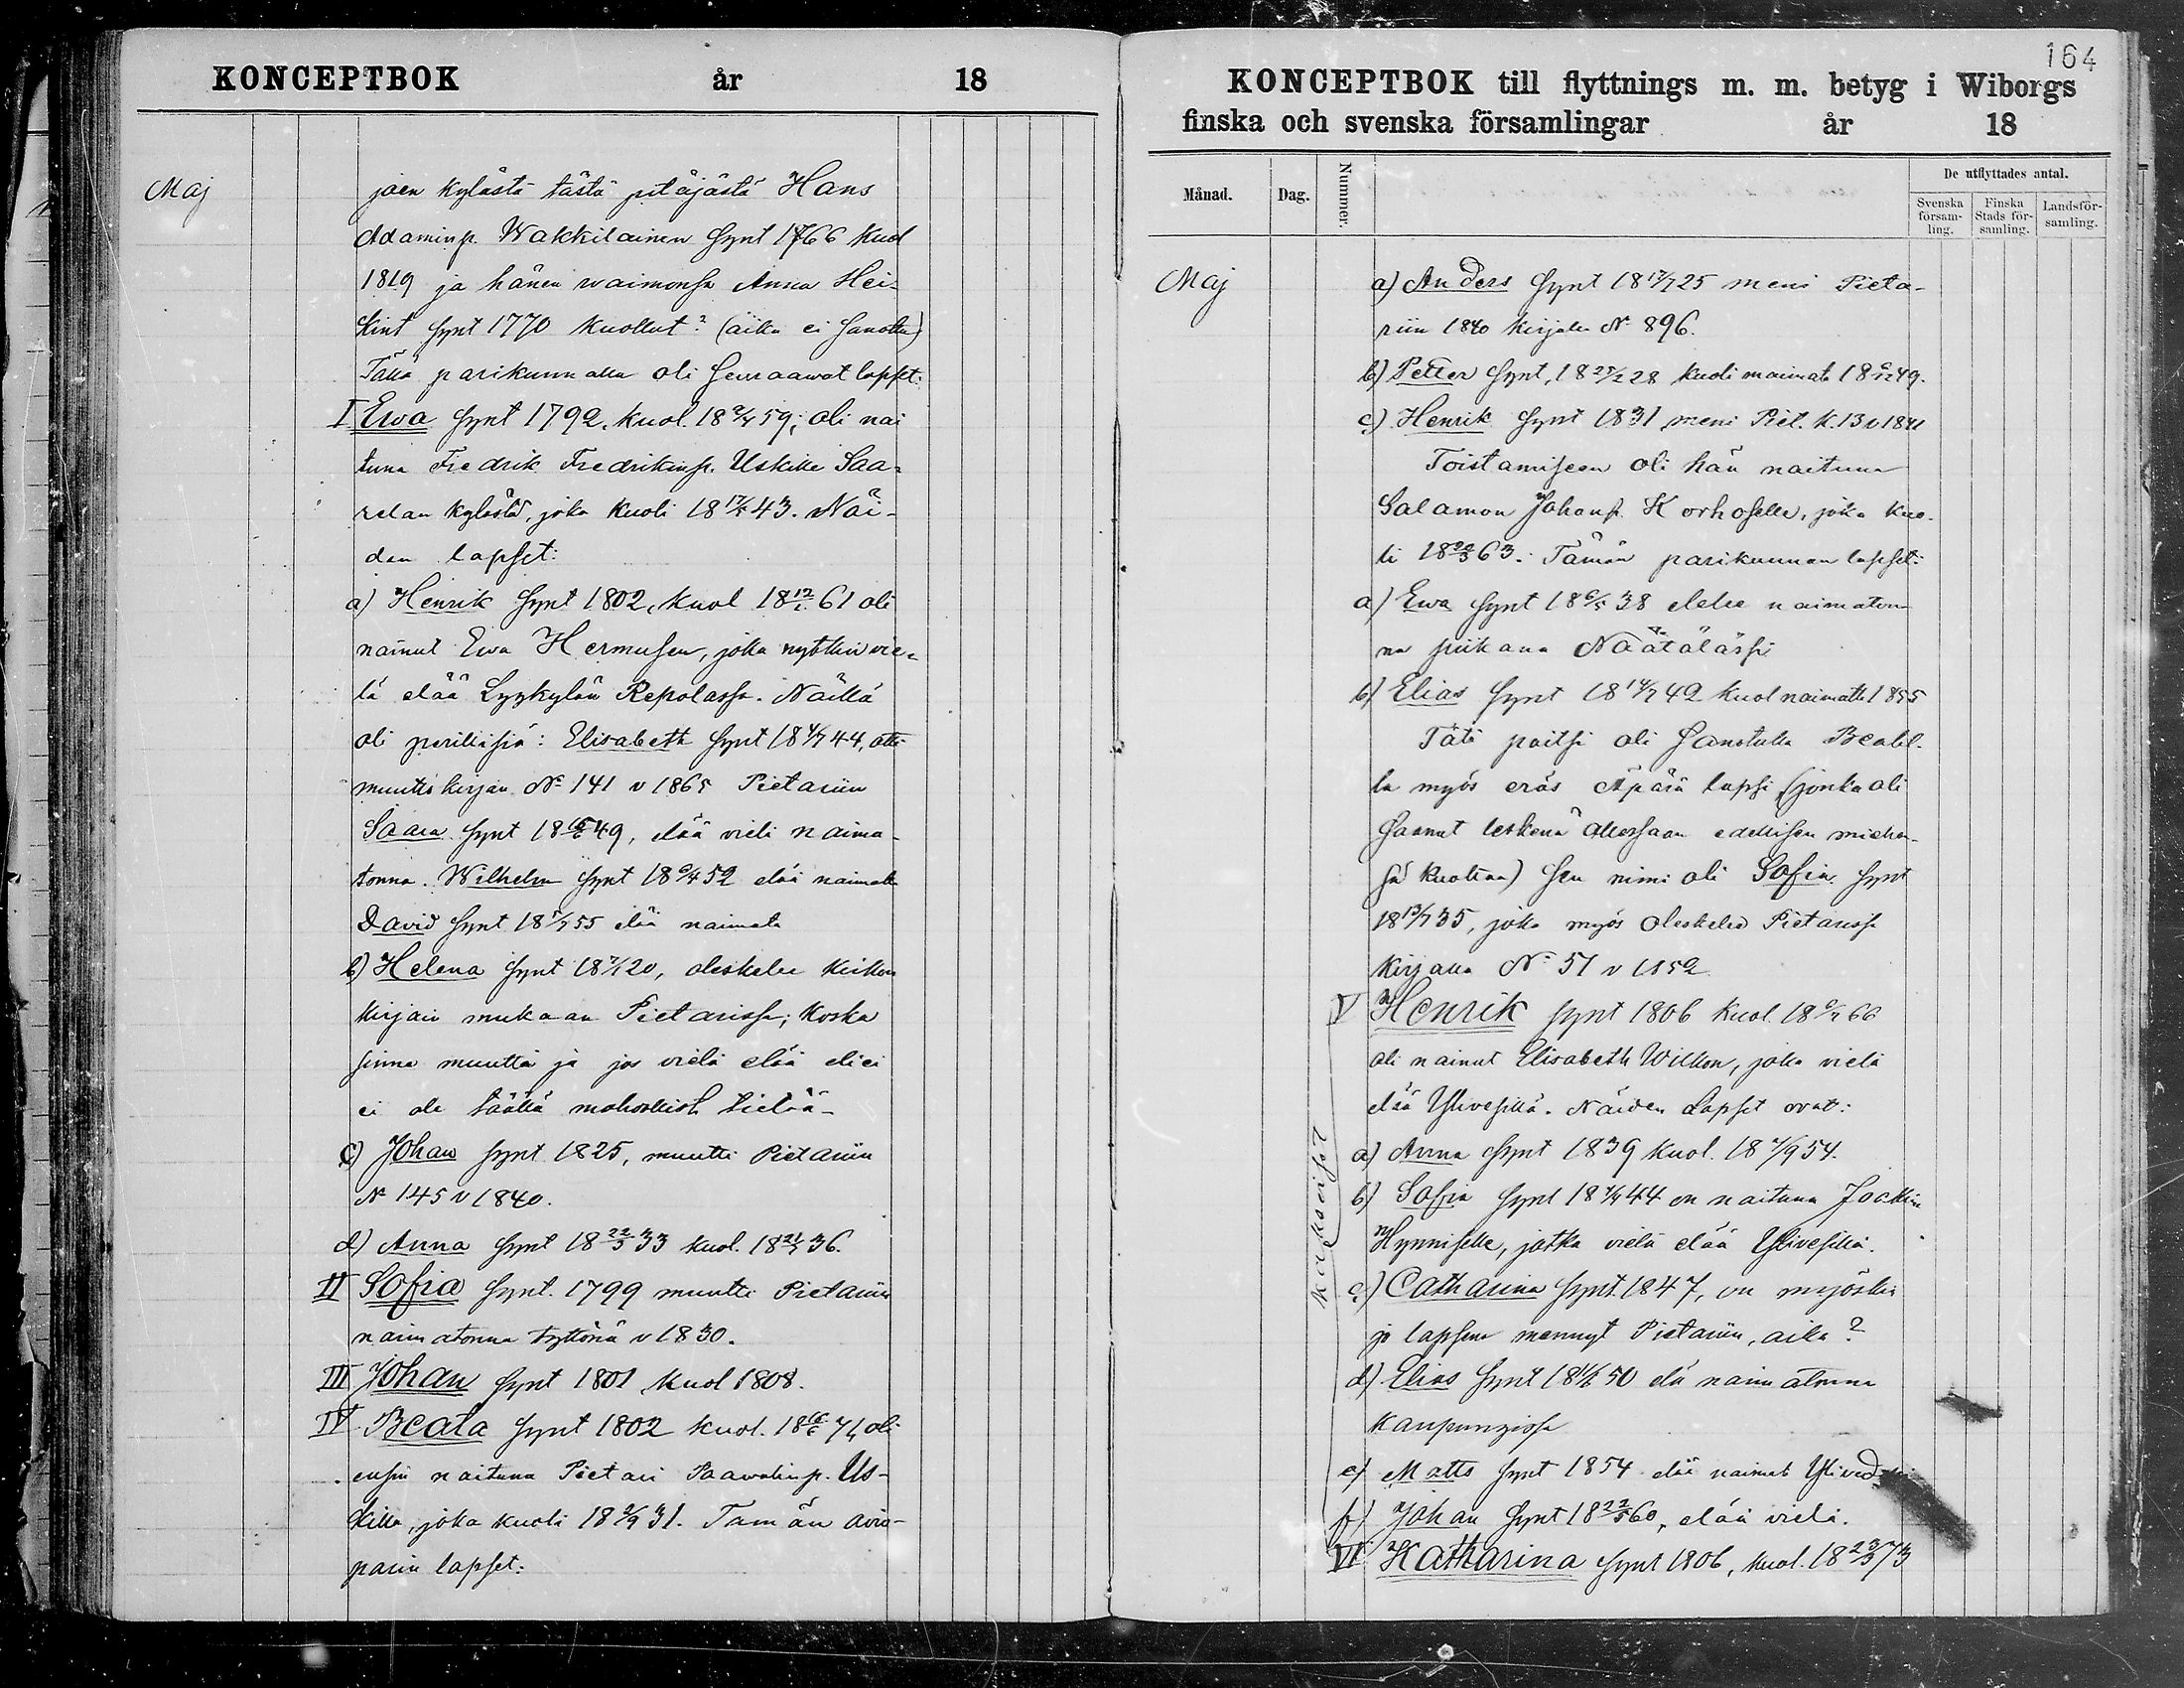 KONCEPTBOK år 18
Maj
joen kylästä tästä pitäjästä Hans
Adaminp. Wakkilainen synt 1766 kuol
1819 ja hänen waimonsa Anna Hei-
kint synt 1770 kuollut? (aika ei sanottu)
Tällä parikunnalla oli seuraawat lapset:
I Ewa synt 1792, kuol. 18 2/4 59; oli nai
tuna Fredrik Fredrikinp. Uskille Saa-
relan kylästä, joka kuoli 18 17/5 43. Näi-
den lapset:
a) Henrik synt 1802, kuol 18 12/1 61 oli
nainut Ewa Hermusen, joka nytkin vie-
lä elää Lyykylän Repolassa. Näillä
oli perillisiä: Elisabeth synt 18 4/7 44, otti
muuttokirjan No 141 v 1865 Pietariin
Saara synt 18 16/6 49, elää vielä naima-
tonna. Wilhelm synt 18 6/4 52 elää naimatt
David synt 18 5/7 55 elää naimata
b) Helena synt 18 7/1 20, oleskelee kirkon
kirjain mukaan Pietarissa; koska
sinne muutti ja jos vielä elää eli ei
ei ole täällä mahdollista tietää-
c) Johan synt 1825, muutti Pietariin
No 145 v 1840.
d) Anna synt 18 22/3 33 kuol. 18 21/3 36.
II Sofia synt. 1799 muutti Pietariin
naimatonna tyttönä v 1830.
III Johan synt 1801 kuol 1808.
IV Beata synt 1802 kuol. 18 16/6 74 oli
ensin naituna Pietari Paawalinp. Us-
kille, joka kuoli 18 2/9 31. Tämän avio-
parin lapset:
164
KONCEPTBOK till flyttnings m. m. betyg i Wiborgs
finska och svenska församlingar år 18
Månad. Dag. Nummer. De utflyttades antal.
Svenska församling. Finska Stads församling. Landsförsamling.
Maj
a) Anders synt 18 17/7 25 meni Pieta-
riin 1840 kirjalla No 896.
b) Petter synt, 18 27/2 28 kuoli naimata 18 6/12 49.
c) Henrik synt 1831 meni Piet. K. 13 v 1841
Toistamiseen oli hän naituna
Salamon Johanp. Korhoselle, joka kuo-
li 18 22/3 63. Tämän parikunnan lapset:
a) Ewa synt 18 6/5 38 elelee naimaton-
na piikana Näätälässä
b) Elias synt 18 14/7 42 kuol naimatta 1855
Tätä paitsi oli sanotulla Beatal-
la myös eräs Äpärä lapsi (jonka oli
saanut leskenä ollessaan edellisen miehen-
sä kuoltua) sen nimi oli Sofia synt
18 13/7 35, joka myös oleskelee Pietarissa
kirjalla No 51 v 1852
V Henrik synt 1806 kuol. 18 6/7 66
oli nainut Elisabeth Wilkon, joka vielä
elää Ylivesillä. Näiden Lapset ovat:
a) Anna synt 1839 kuol. 18 7/9 54.
b) Sofia synt 18 7/4 44 on naituna Joakkim
Hynniselle, jotka vielä elää Ylivesillä.
c) Catharina synt. 1847, on myöskin
jo lapsena mennyt Pietariin, aika?
d) Elias synt 18 11/6 50 elää naimatonna
kaupungissa
e) Matts synt 1854 elää naimat Ylived
f) Johan synt 18 22/5 60, elää vielä.
kaksoiset
VI Katharina synt 1806, kuol. 18 23/3 73